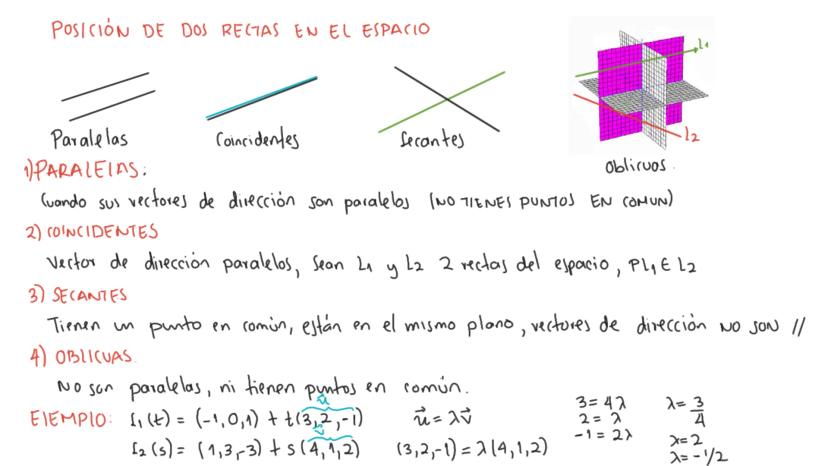 POSICIÓN DE DOS RECTAS EN EL ESPACIO
L1
L2
Paralelas Coincidentes Secantes Oblicuos.
1) PARALELAS:
Cuando sus vectores de dirección son paralelos (NO TIENES PUNTOS EN COMUN)
2) COINCIDENTES
Vector de dirección paralelos, Sean L1 y L2 2 rectas del espacio, PL1 ∈ L2
3) SECANTES
Tienen un punto en común, están en el mismo plano, vectores de dirección NO SON //
4) OBLICUAS
No son paralelas, ni tienen puntos en común.
EJEMPLO: r1(t) = (-1,0,1) + t(3,2,-1) u⃗ u⃗ = λv⃗ 3 = 4λ λ = 3/4
2 = λ
r2(s) = (1,3,-3) + s(4,1,2) v⃗ (3,2,-1) = λ(4,1,2) -1 = 2λ λ = 2
λ = -1/2